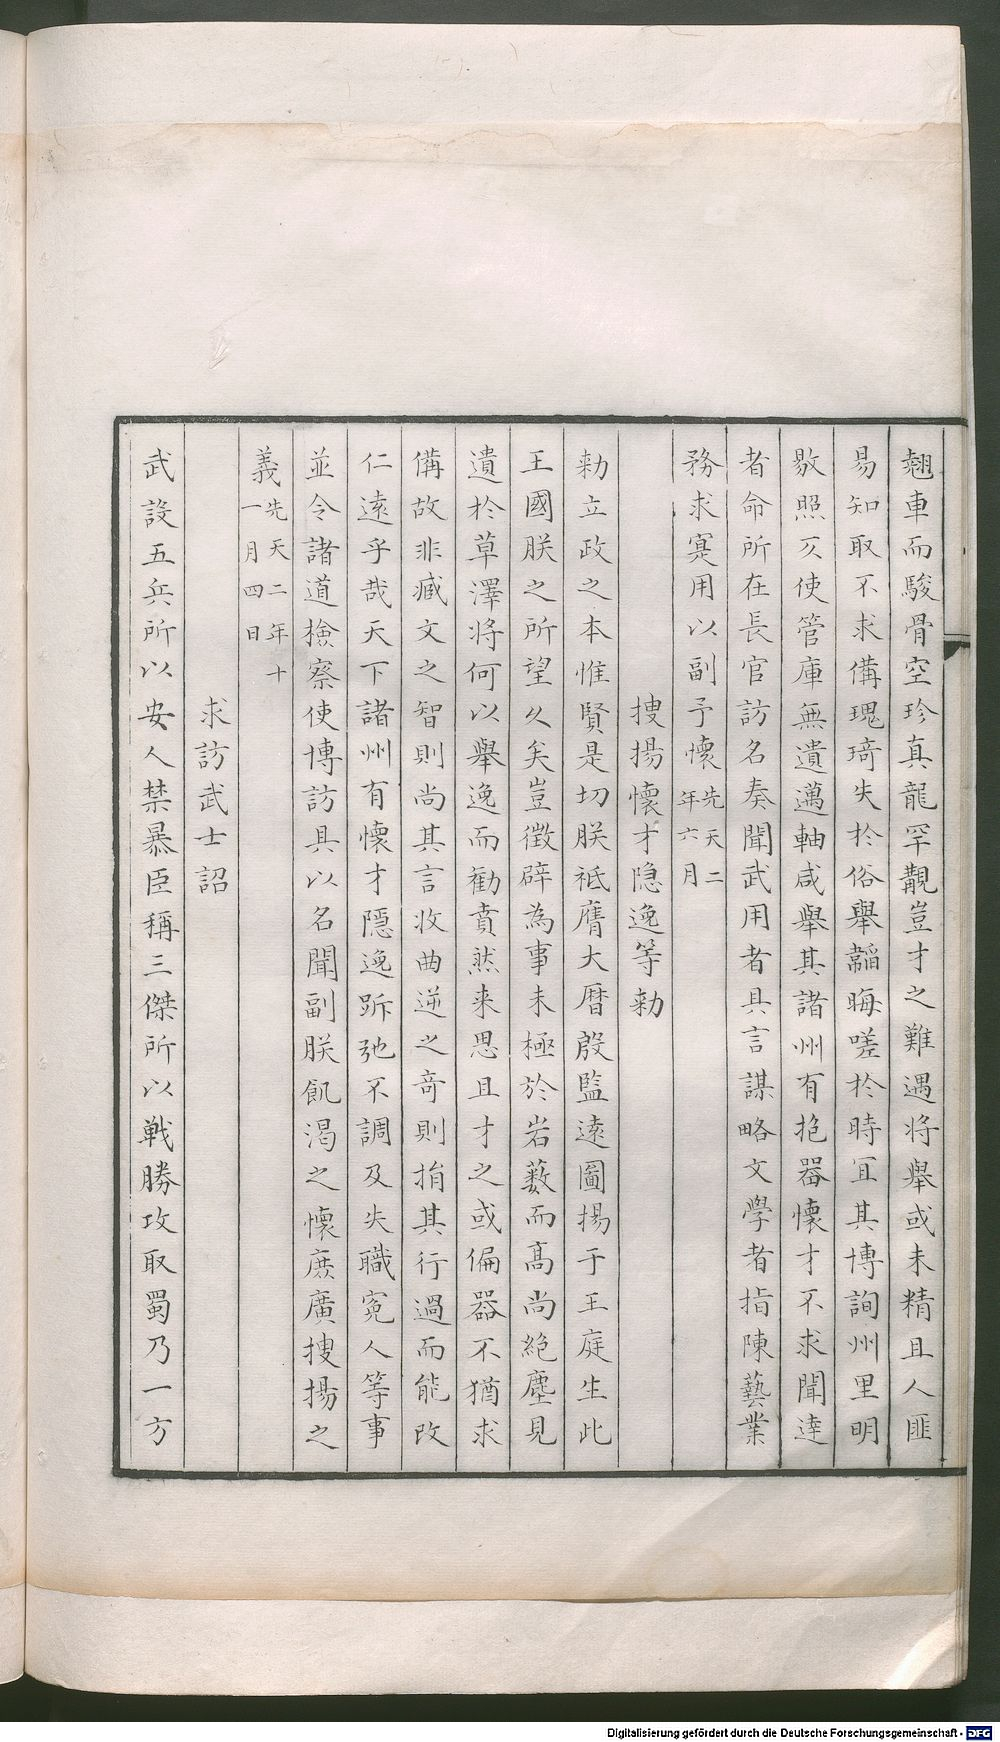 翹車而駿骨空珍真龍罕覿豈才之難遇将舉或未精且人匪
易知取不求備瑰琦失於俗舉韜晦嗟於時冝其博詢州里明
敭照仄使管庫無遺邁軸咸舉其諸州有抱器懷才不求聞達
者命所在長官訪名奏聞武用者具言謀略文學者指陳藝業
務求寔用以副予懷先天二年六月
搜揚懷才隐逸等勑
勑立政之本惟賢是切朕祗膺大曆殷監遠圖揚于王庭生此
王國朕之所望久矣豈徴辟為事未極於岩薮而高尚絶塵見
遺於草澤将何以舉逸而勸賁然来思且才之或偏器不猶求
備故非臧文之智則尚其言收曲逆之奇則捐其行過而能改
仁遠乎哉天下諸州有懷才隱逸跅弛不調及失職寃人等事
並令諸道撿察使博訪具以名聞副朕飢渴之懷庶廣搜揚之
義先天二年十一月四日
求訪武士詔
武設五兵所以安人禁暴臣稱三傑所以戦勝攻取蜀乃一方
Digitalisierung gefördert durch die Deutsche Forschungsgemeinschaft - DFG